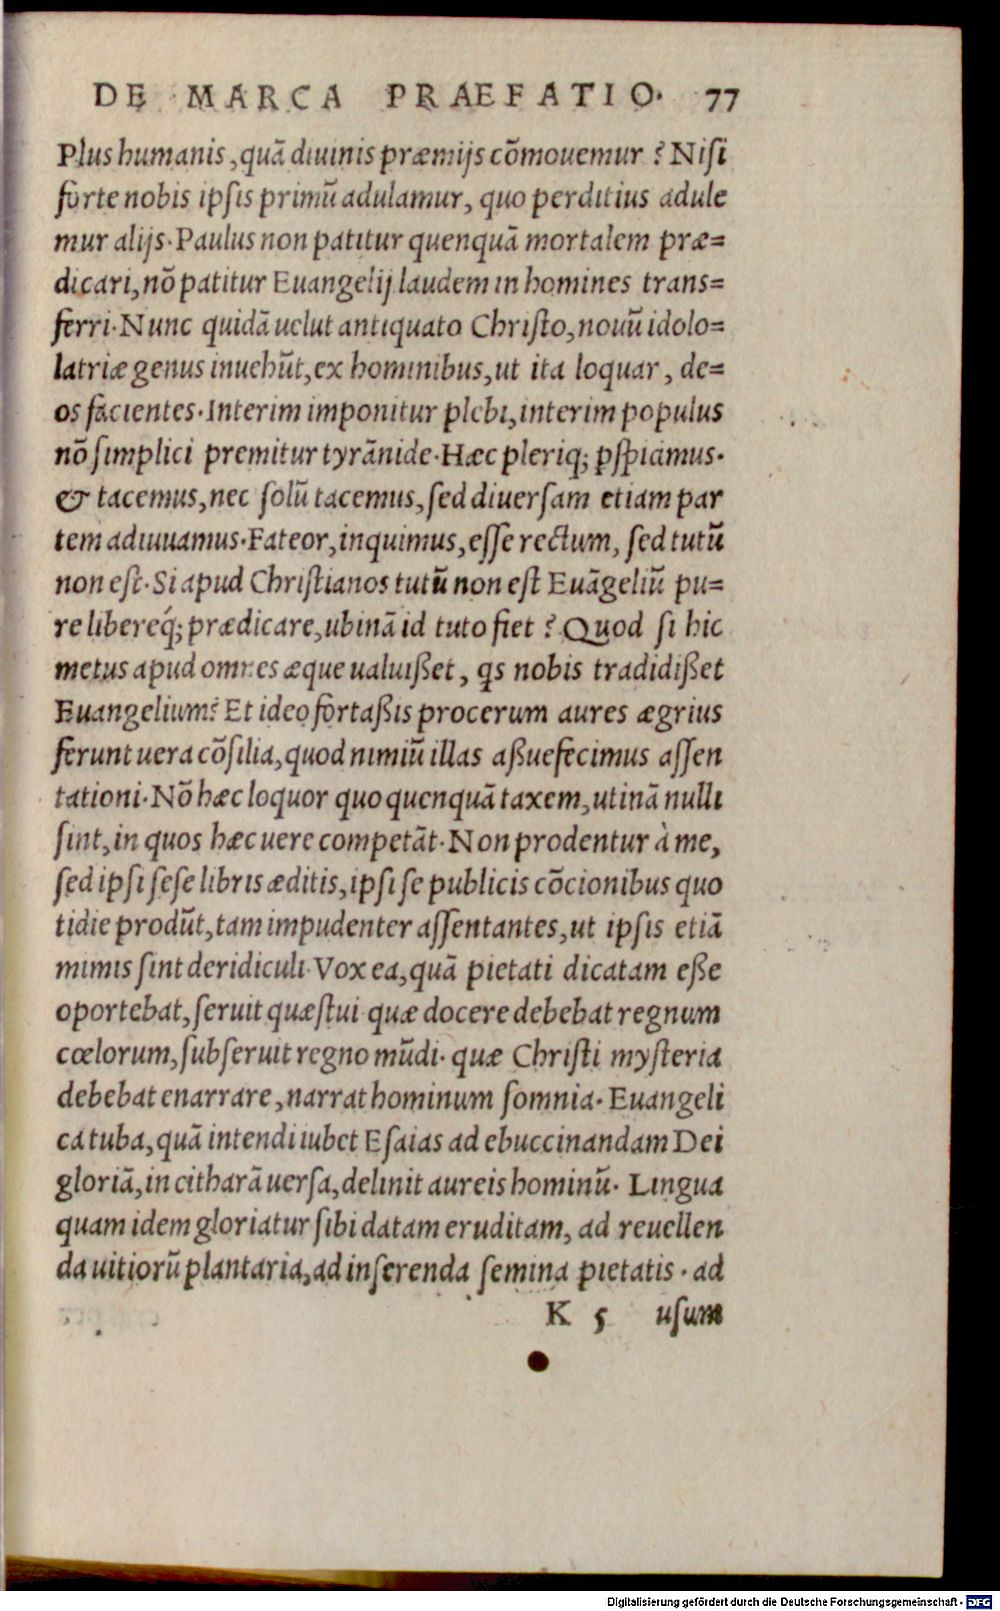 DE MARCA PRAEFATIO. 77
Plus humanis, quā diuinis præmijs cōmouemur? Nisi
forte nobis ipsis primū adulamur, quo perditius adule
mur alijs. Paulus non patitur quenquā mortalem præ=
dicari, nō patitur Euangelij laudem in homines trans=
ferri. Nunc quidā uelut antiquato Christo, nouū idolo=
latriæ genus inuehūt, ex hominibus, ut ita loquar, de=
os facientes. Interim imponitur plebi, interim populus
nō simplici premitur tyrānide. Hæc pleriq; pspiciamus.
& tacemus, nec solū tacemus, sed diuersam etiam par
tem adiuuamus. Fateor, inquimus, esse rectum, sed tutū
non est. Si apud Christianos tutū non est Euāgeliū pu=
re libereq́; prædicare, ubinā id tuto fiet? Quod si hic
metus apud omnes æque ualuißet, qs nobis tradidißet
Euangelium? Et ideo fortaßis procerum aures ægrius
ferunt uera cōsilia, quod nimiū illas aßuefecimus assen
tationi. Nō hæc loquor quo quenquā taxem, utinā nulli
sint, in quos hæc uere competāt. Non prodentur à me,
sed ipsi sese libris æditis, ipsi se publicis cōcionibus quo
tidie produ̅t, tam impudenter assentantes, ut ipsis etiā
mimis sint deridiculi. Vox ea, quā pietati dicatam eße
oportebat, seruit quæstui. quæ docere debebat regnum
cœlorum, subseruit regno mūdi. quæ Christi mysteria
debebat enarrare, narrat hominum somnia. Euangeli
ca tuba, quā intendi iubet Esaias ad ebuccinandam Dei
gloriā, in citharā uersa, delinit aureis hominū. Lingua
quam idem gloriatur sibi datam eruditam, ad reuellen
da uitiorū plantaria, ad inserenda semina pietatis. ad
K 5 usum
Digitalisierung gefördert durch die Deutsche Forschungsgemeinschaft - DFG